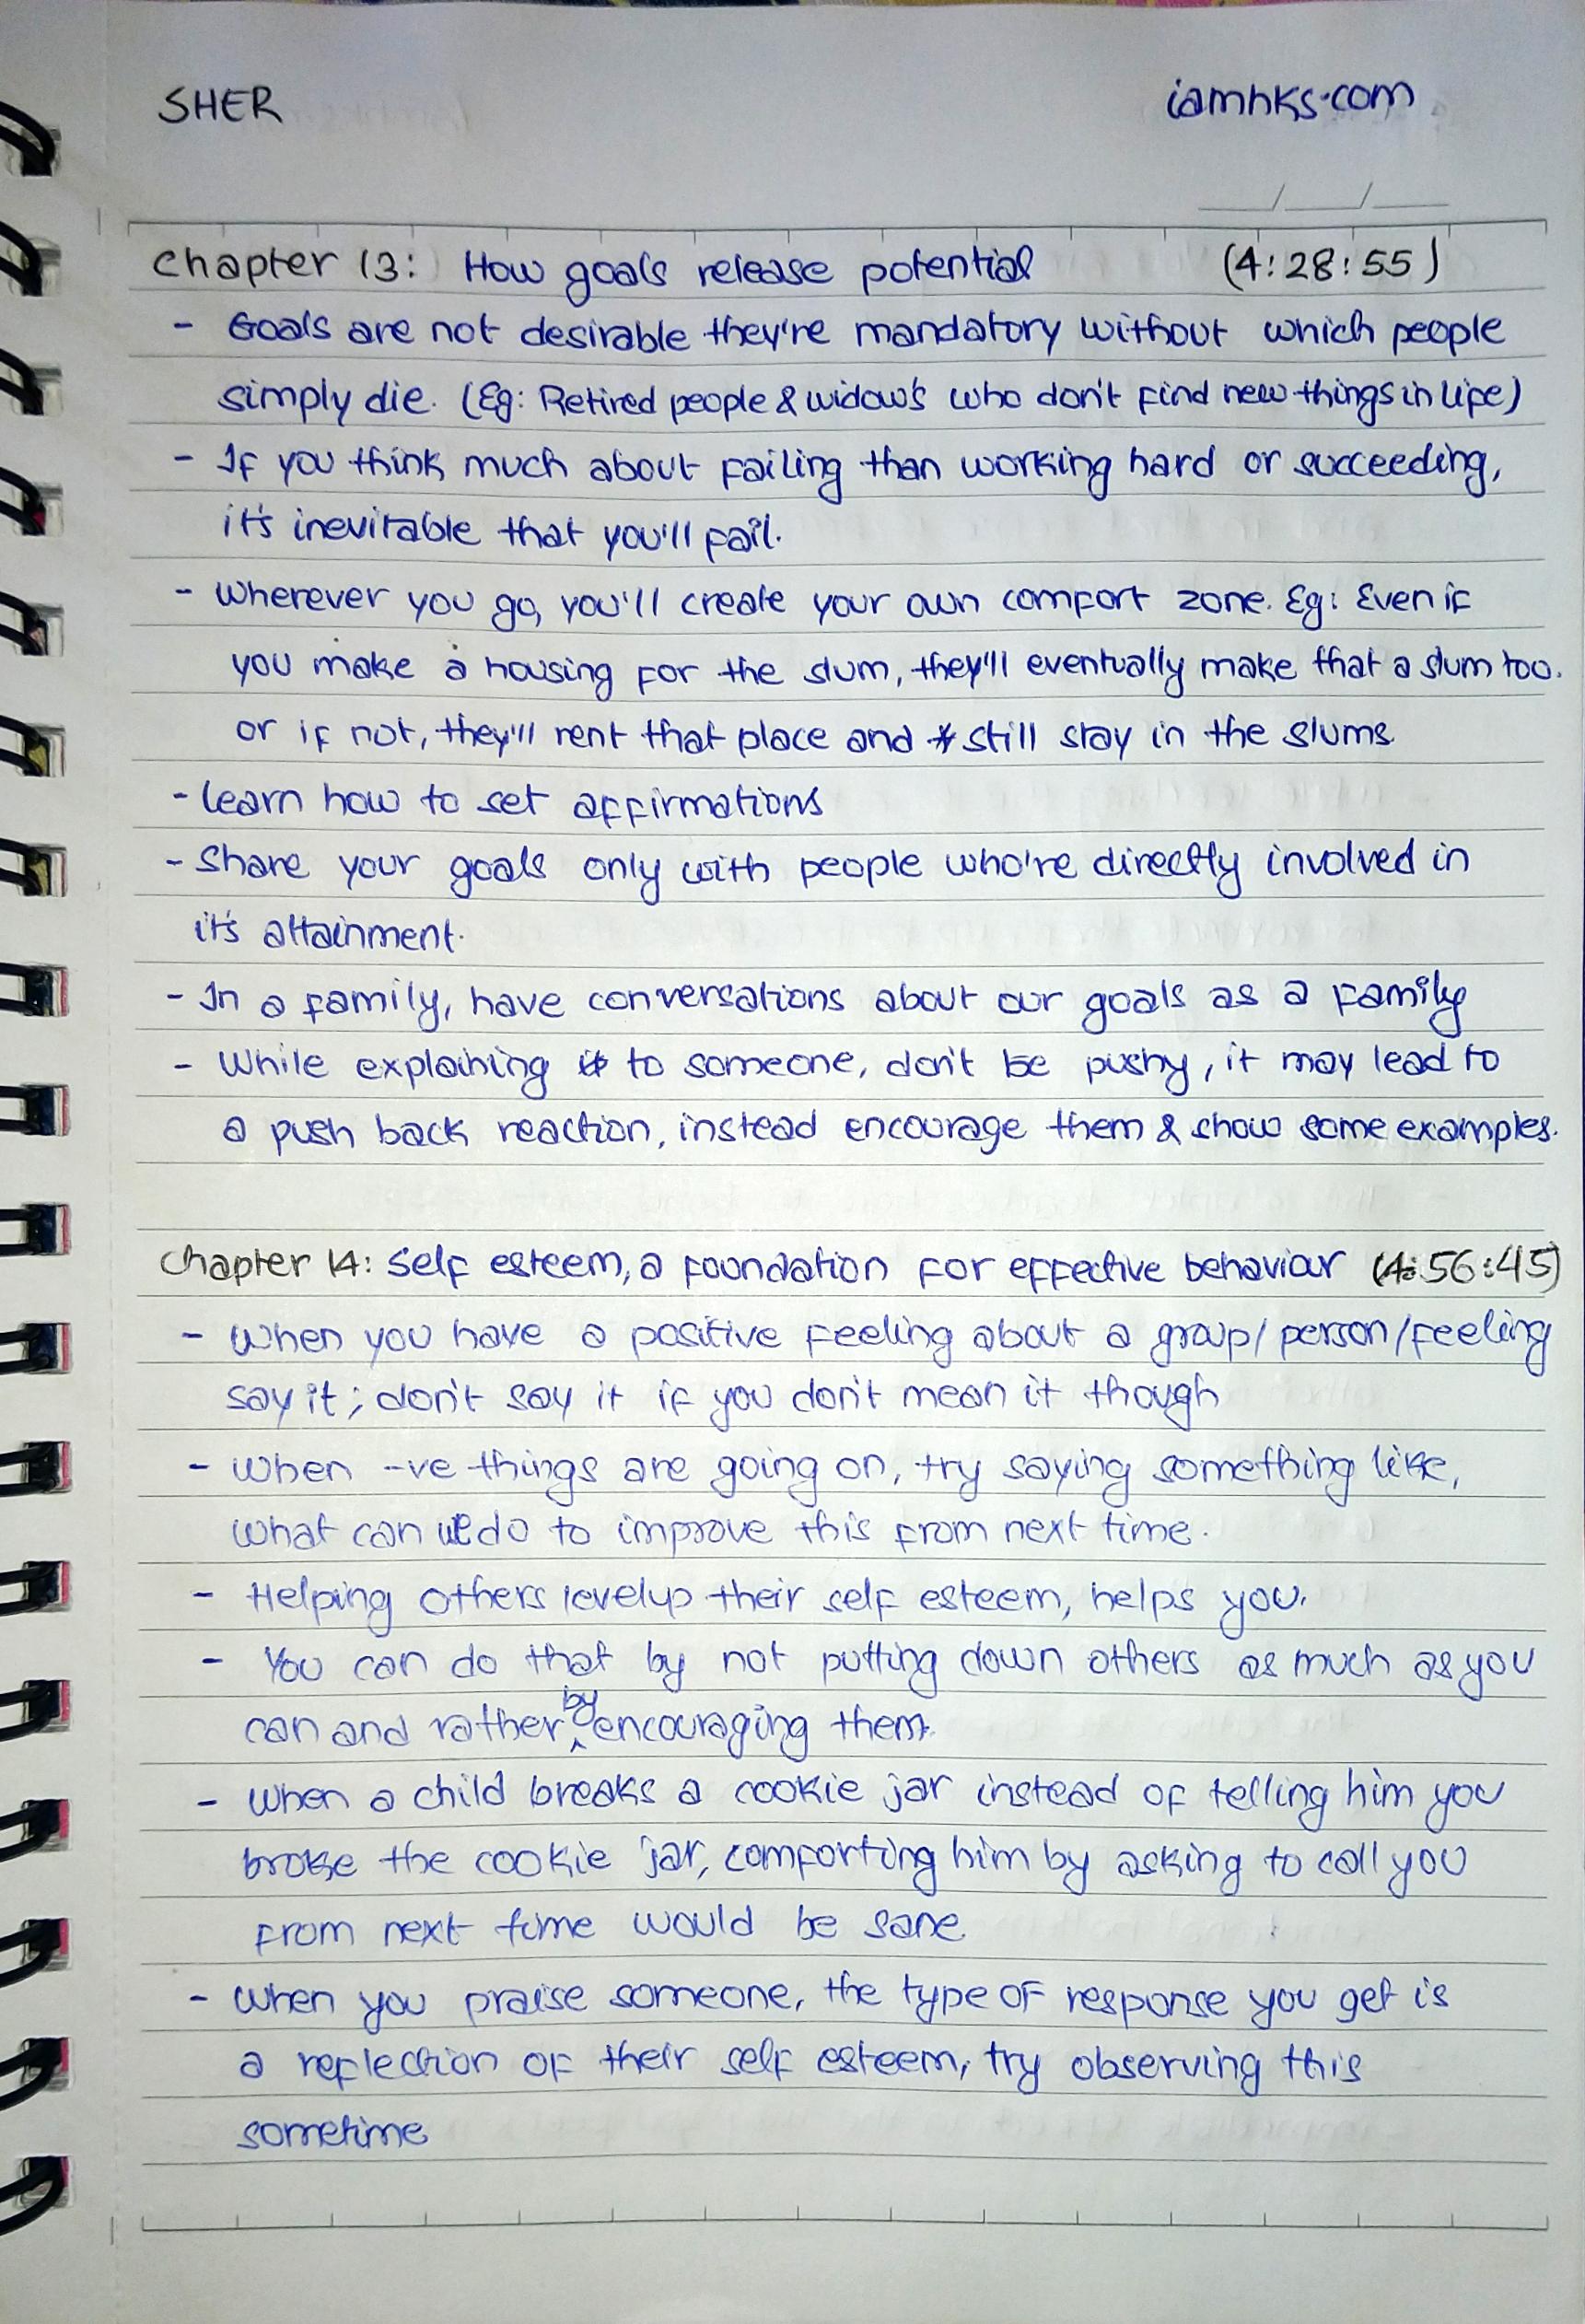 SHER
iamhks.com
Chapter 13: How goals release potential (4:28:55)
- Goals are not desirable they're mandatory without which people
simply die. (Eg: Retired people & widow's who don't find new things in life)
- If you think much about failing than working hard or succeeding,
it's inevitable that you'll fail.
- Wherever you go, you'll create your own comfort zone. Eg: Even if
you make a housing for the slum, they'll eventually make that a slum too.
or if not, they'll rent that place and still stay in the slums.
- Learn how to set affirmations
- Share your goals only with people who're directly involved in
it's attainment.
- In a family, have conversations about our goals as a family
- While explaining to someone, don't be pushy, it may lead to
a push back reaction, instead encourage them & show some examples.
Chapter 14: Self esteem, a foundation for effective behaviour (4:56:45)
- When you have a positive feeling about a group/person/feeling
say it; don't say it if you don't mean it though
- When -ve things are going on, try saying something like,
what can we do to improve this from next time.
- Helping others levelup their self esteem, helps you.
- You can do that by not putting down others as much as you
can and rather by encouraging them.
- When a child breaks a cookie jar instead of telling him you
broke the cookie jar, comforting him by asking to call you
from next time would be sane.
- When you praise someone, the type of response you get is
a reflection of their self esteem, try observing this
sometime